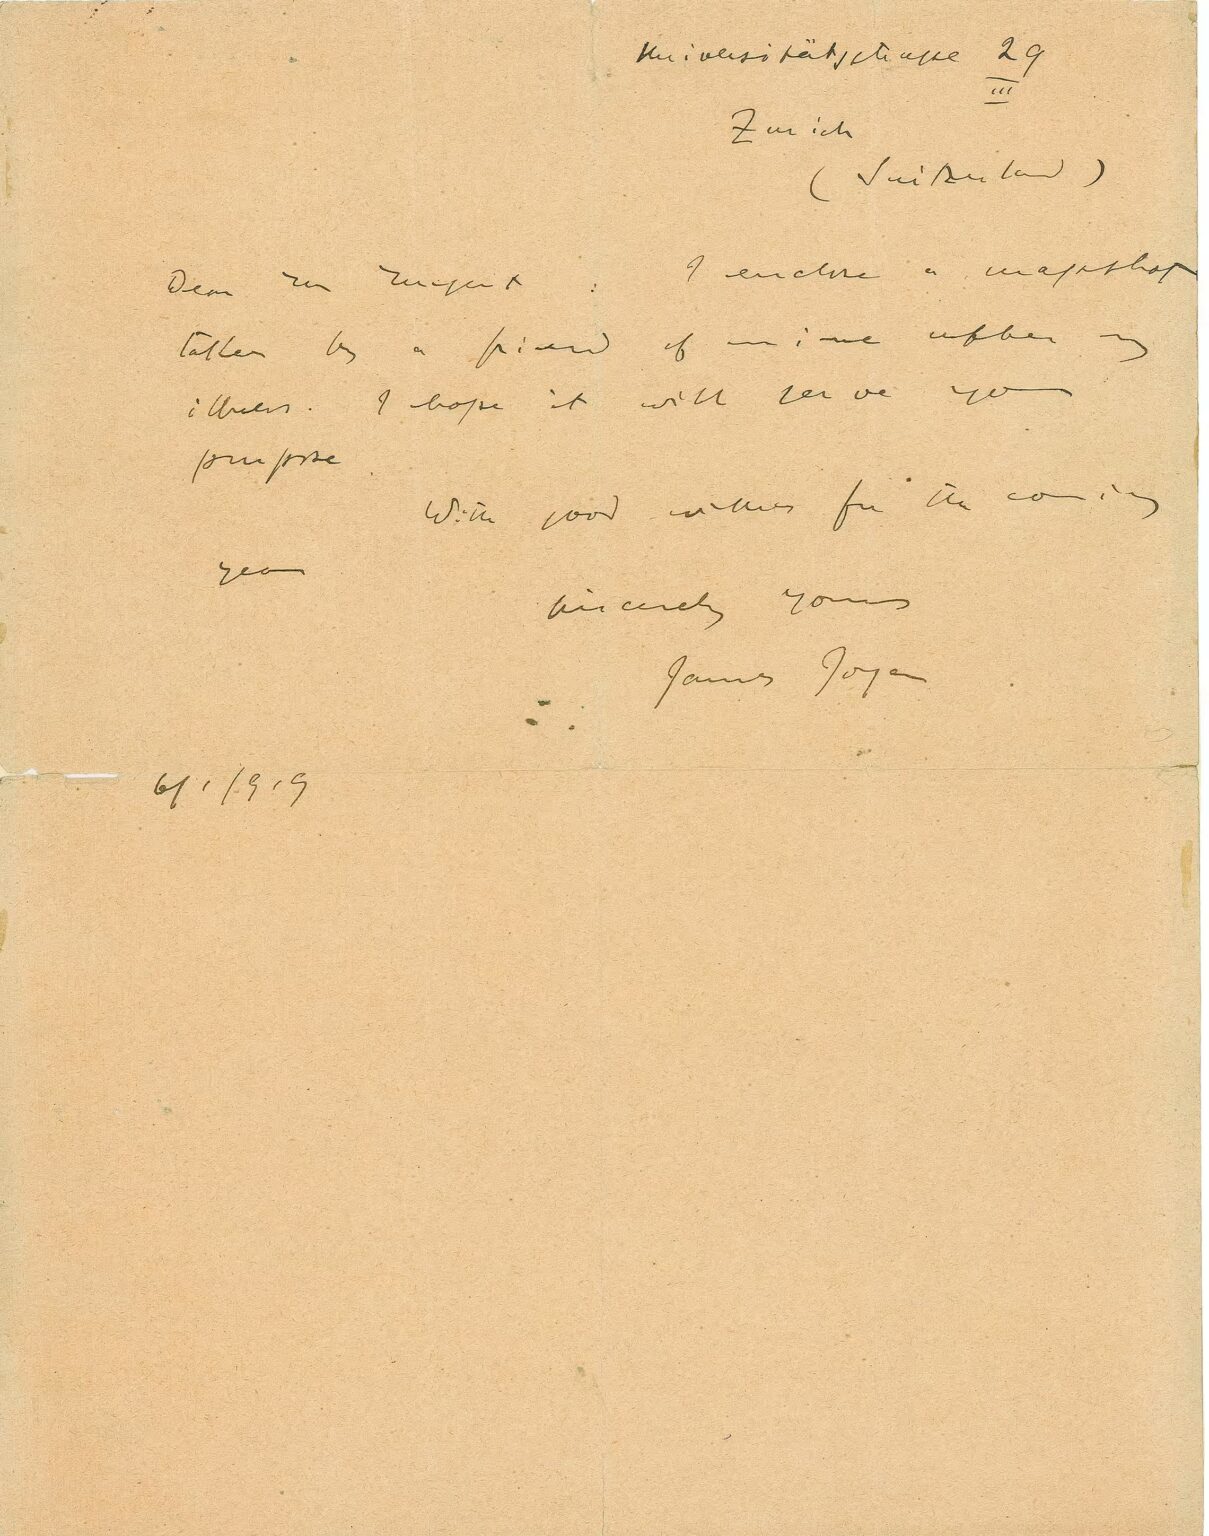 Universitätsstrasse 29
III
Zurich
(Switzerland)
Dear Mr : I enclose a snapshot
taken by a friend of mine after my
illness. I hope it will serve your
purpose.
With good wishes for the coming
year
sincerely yours
James Joyce
6/1/919